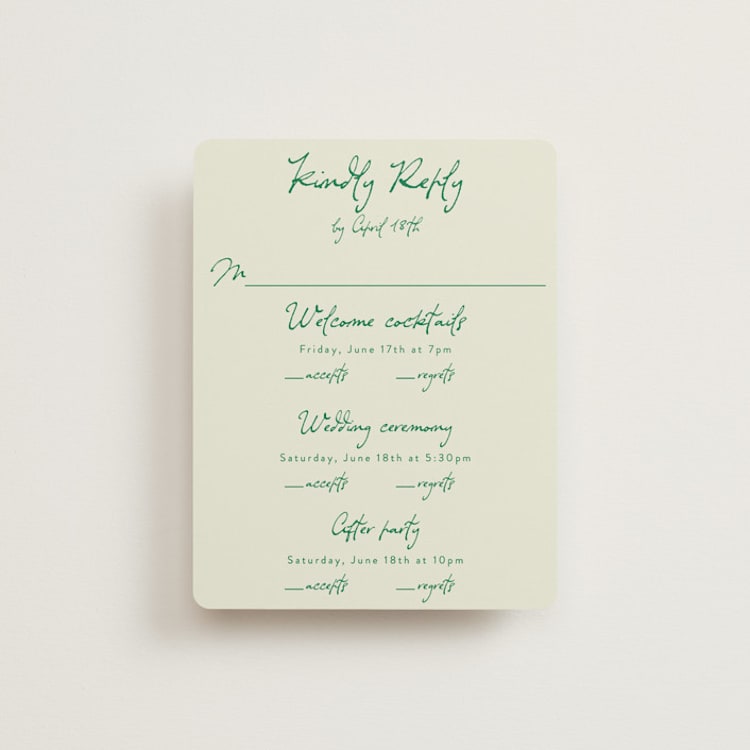 Kindly Reply
by April 18th
M
Welcome cocktails
Friday, June 17th at 7pm
accepts regrets
Wedding ceremony
Saturday, June 18th at 5:30pm
accepts regrets
After party
Saturday, June 18th at 10pm
accepts regrets